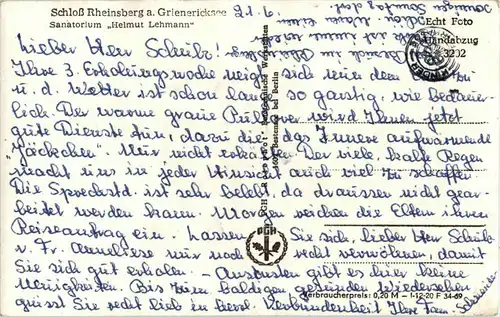 Schloß Rheinsberg a. Grienericksee
Sanatorium „Helmut Lehmann"
Echt Foto
Handabzug
3202
Lieber Herr Schulz!
Ihre 3. Erholungswoche neigt sich nun dem
u. d. Wetter ist schon lange so garstig, wie bedauer-
lich. Der warme graue Pullover wird Ihnen jetzt
gute Dienste tun, dazu die das Innere aufwärmende
"Jäckchen". Nur nicht erkälten. Der viele, kalte Regen
macht uns in jeder Hinsicht auch viel zu schaffen.
Die Sprechstd. ist sehr belebt, da draussen nicht gear-
beitet werden kann. Morgen reichen die Eltern ihren
Reiseantrag ein. Lassen Sie sich, lieber Herr Schulz
v. Fr. Anneliese nur noch recht verwöhnen, damit
Sie sich gut erholen. - Ansonsten gibt es hier keine
Neuigkeiten. Bis zum baldigen gesunden Wiedersehen
grüsst Sie recht lieb in herzl. Verbundenheit Ihre Fam.
Verbraucherpreis: 0,20 M – I-12-20 F 34-69
PGH
1607 Bestensee bei Berlin